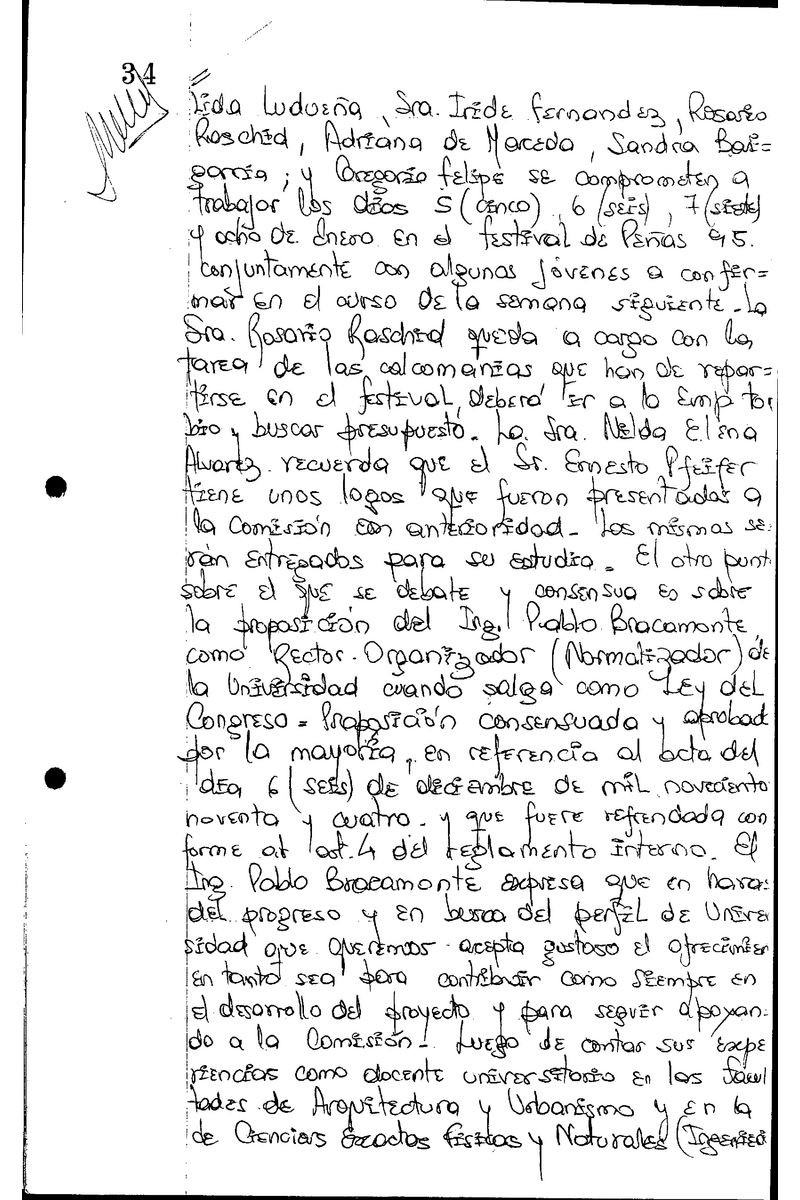 34
Lida Ludueña, Sra. Iride Fernandez, Rosario
Raschid, Adriana de Merceda, Sandra Bai=
garria; y Gregorio Felipe se comprometen a
trabajar los días 5 (cinco), 6 (seis), 7 (siete)
y ocho de Enero en el festival de Peñas 95.
conjuntamente con algunos jóvenes a confir=
mar en el curso de la semana siguiente. La
Sra. Rosario Raschid queda a cargo con la
tarea de las calcomanias que han de repar=
tirse en el festival, deberá ir a lo Emp tor
bio y buscar presupuesto. La Sra. Nélda Elena
Alvarez recuerda que el Sr. Ernesto Pfeifer
tiene unos logos que fueron presentadas a
la Comisión con anterioridad. Los mismos se
rán entregados para su estudio. El otro punt
sobre el que se debate y consensua es sobre
la proposición del Ing. Pablo Bracamonte,
como Rector Organizador (Normalizador) de
la Universidad cuando salga como Ley del
Congreso = Proposición consensuada y aprobad
por la mayoría, en referencia al acta del
día 6 (seis) de diciembre de mil noveciento
noventa y cuatro. y que fuere refrendada con
forme at art. 4 del reglamento interno. El
Ing. Pablo Bracamonte expresa que en haras
del progreso y en busca del perfil de Univer
sidad que queremos acepta gustoso el ofrecimien
en tanto sea para contribuir como siempre en
el desarrollo del proyecto y para seguir apoyan.
do a la Comisión. Luego de contar sus expe
riencias como docente universitario en las facul
tades de Arquitectura y Urbanismo y en la
de Ciencias Exactas Fisicas y Naturales (Ingenier